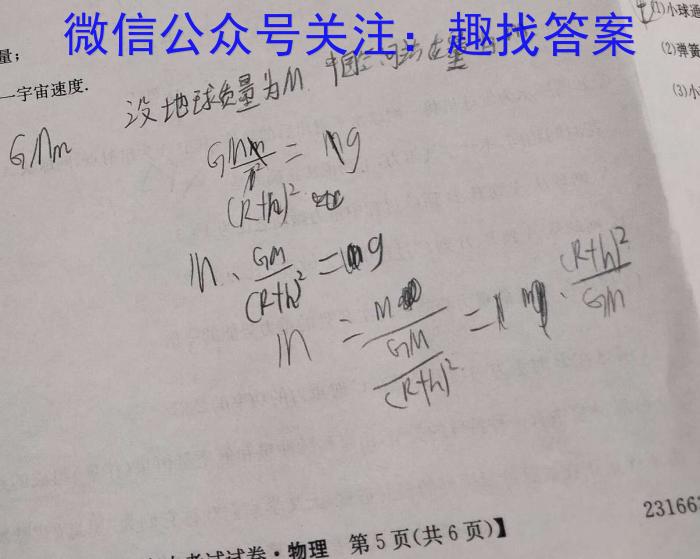 (1)小球通
微信公众号关注：趣找答案
量；
(2)弹簧
—宇宙速度.
(3)小
设地球质量为M 中国空间站
GMm
GMm/r² = Mg
(R+h)²
m · GM/(R+h)² = mg
m = M/(GM/(R+h)²) = Mg · (R+h)²/GM
231667
考试试卷·物理 第5页(共6页)】